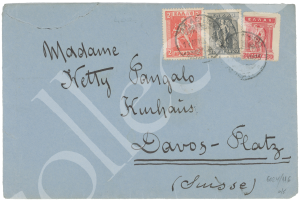 ΕΛΛΑΣ
Madame
Ketty Pangalo
Kurhaus
Davos-Platz
(Suisse)